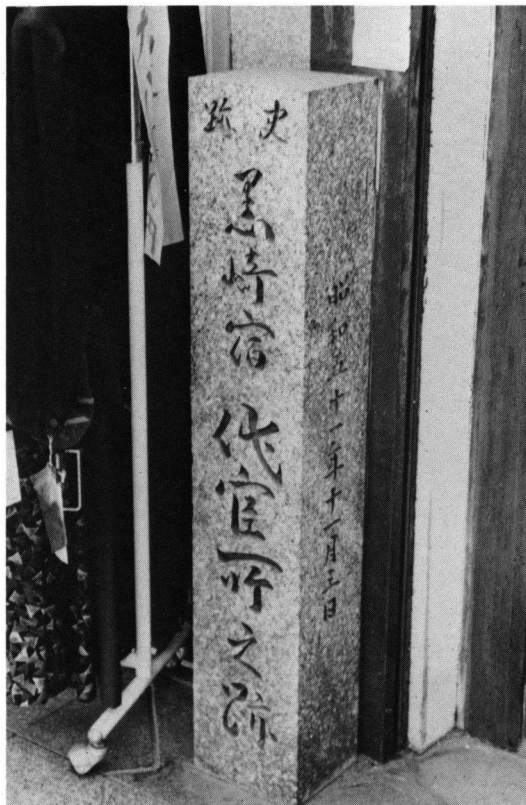 史跡
黒崎宿代官所之跡
昭和五十一年十一月三日